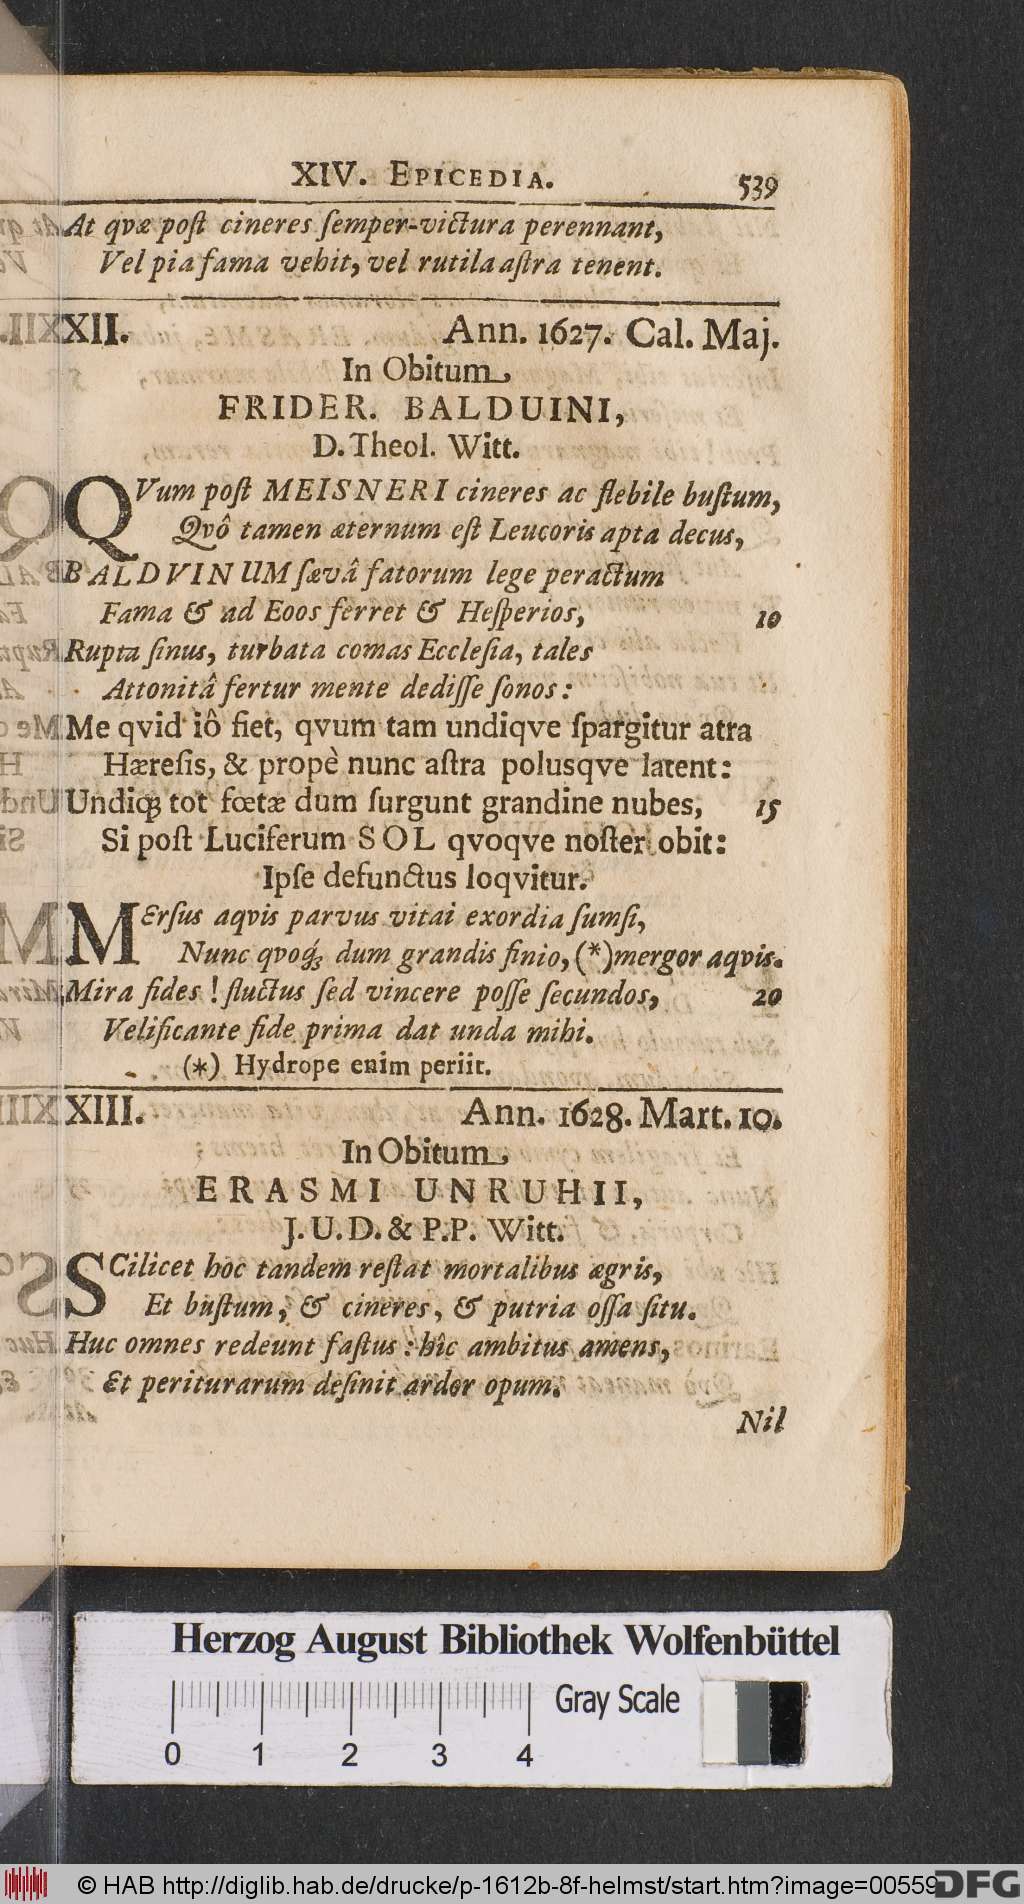 XIV. EPICEDIA. 539
At qvæ poſt cineres ſemper-victura perennant,
Vel pia fama vehit, vel rutila aſtra tenent.
XII. Ann. 1627. Cal. Maj.
In Obitum
FRIDER. BALDUINI,
D. Theol. Witt.
QVum poſt MEISNERI cineres ac flebile buſtum,
Qvô tamen æternum eſt Leucoris apta decus,
BALDVINUM ſævâ fatorum lege peractum
Fama & ad Eoos ferret & Heſperios, 10
Rupta ſinus, turbata comas Eccleſia, tales
Attonitâ fertur mente dediſſe ſonos:
Me qvid iô fiet, qvum tam undiqve ſpargitur atra
Hæreſis, & propè nunc aſtra polusqve latent:
Undiq; tot fœtæ dum ſurgunt grandine nubes, 15
Si poſt Luciferum SOL qvoqve noſter obit:
Ipſe defunctus loqvitur.
MErſus aqvis parvus vitai exordia ſumſi,
Nunc qvoq́; dum grandis finio, (*) mergor aqvis.
Mira fides! fluctus ſed vincere poſſe ſecundos, 20
Velificante fide prima dat unda mihi.
(*) Hydrope enim periit.
XIII. Ann. 1628. Mart. 10.
In Obitum
ERASMI UNRUHII,
J. U. D. & P. P. Witt.
SCilicet hoc tandem reſtat mortalibus ægris,
Et buſtum, & cineres, & putria oſſa ſitu.
Huc omnes redeunt faſtus: hîc ambitus amens,
Et periturarum deſinit ardor opum.
Nil
Herzog August Bibliothek Wolfenbüttel
Gray Scale
0 1 2 3 4
© HAB http://diglib.hab.de/drucke/p-1612b-8f-helmst/start.htm?image=00559
DFG